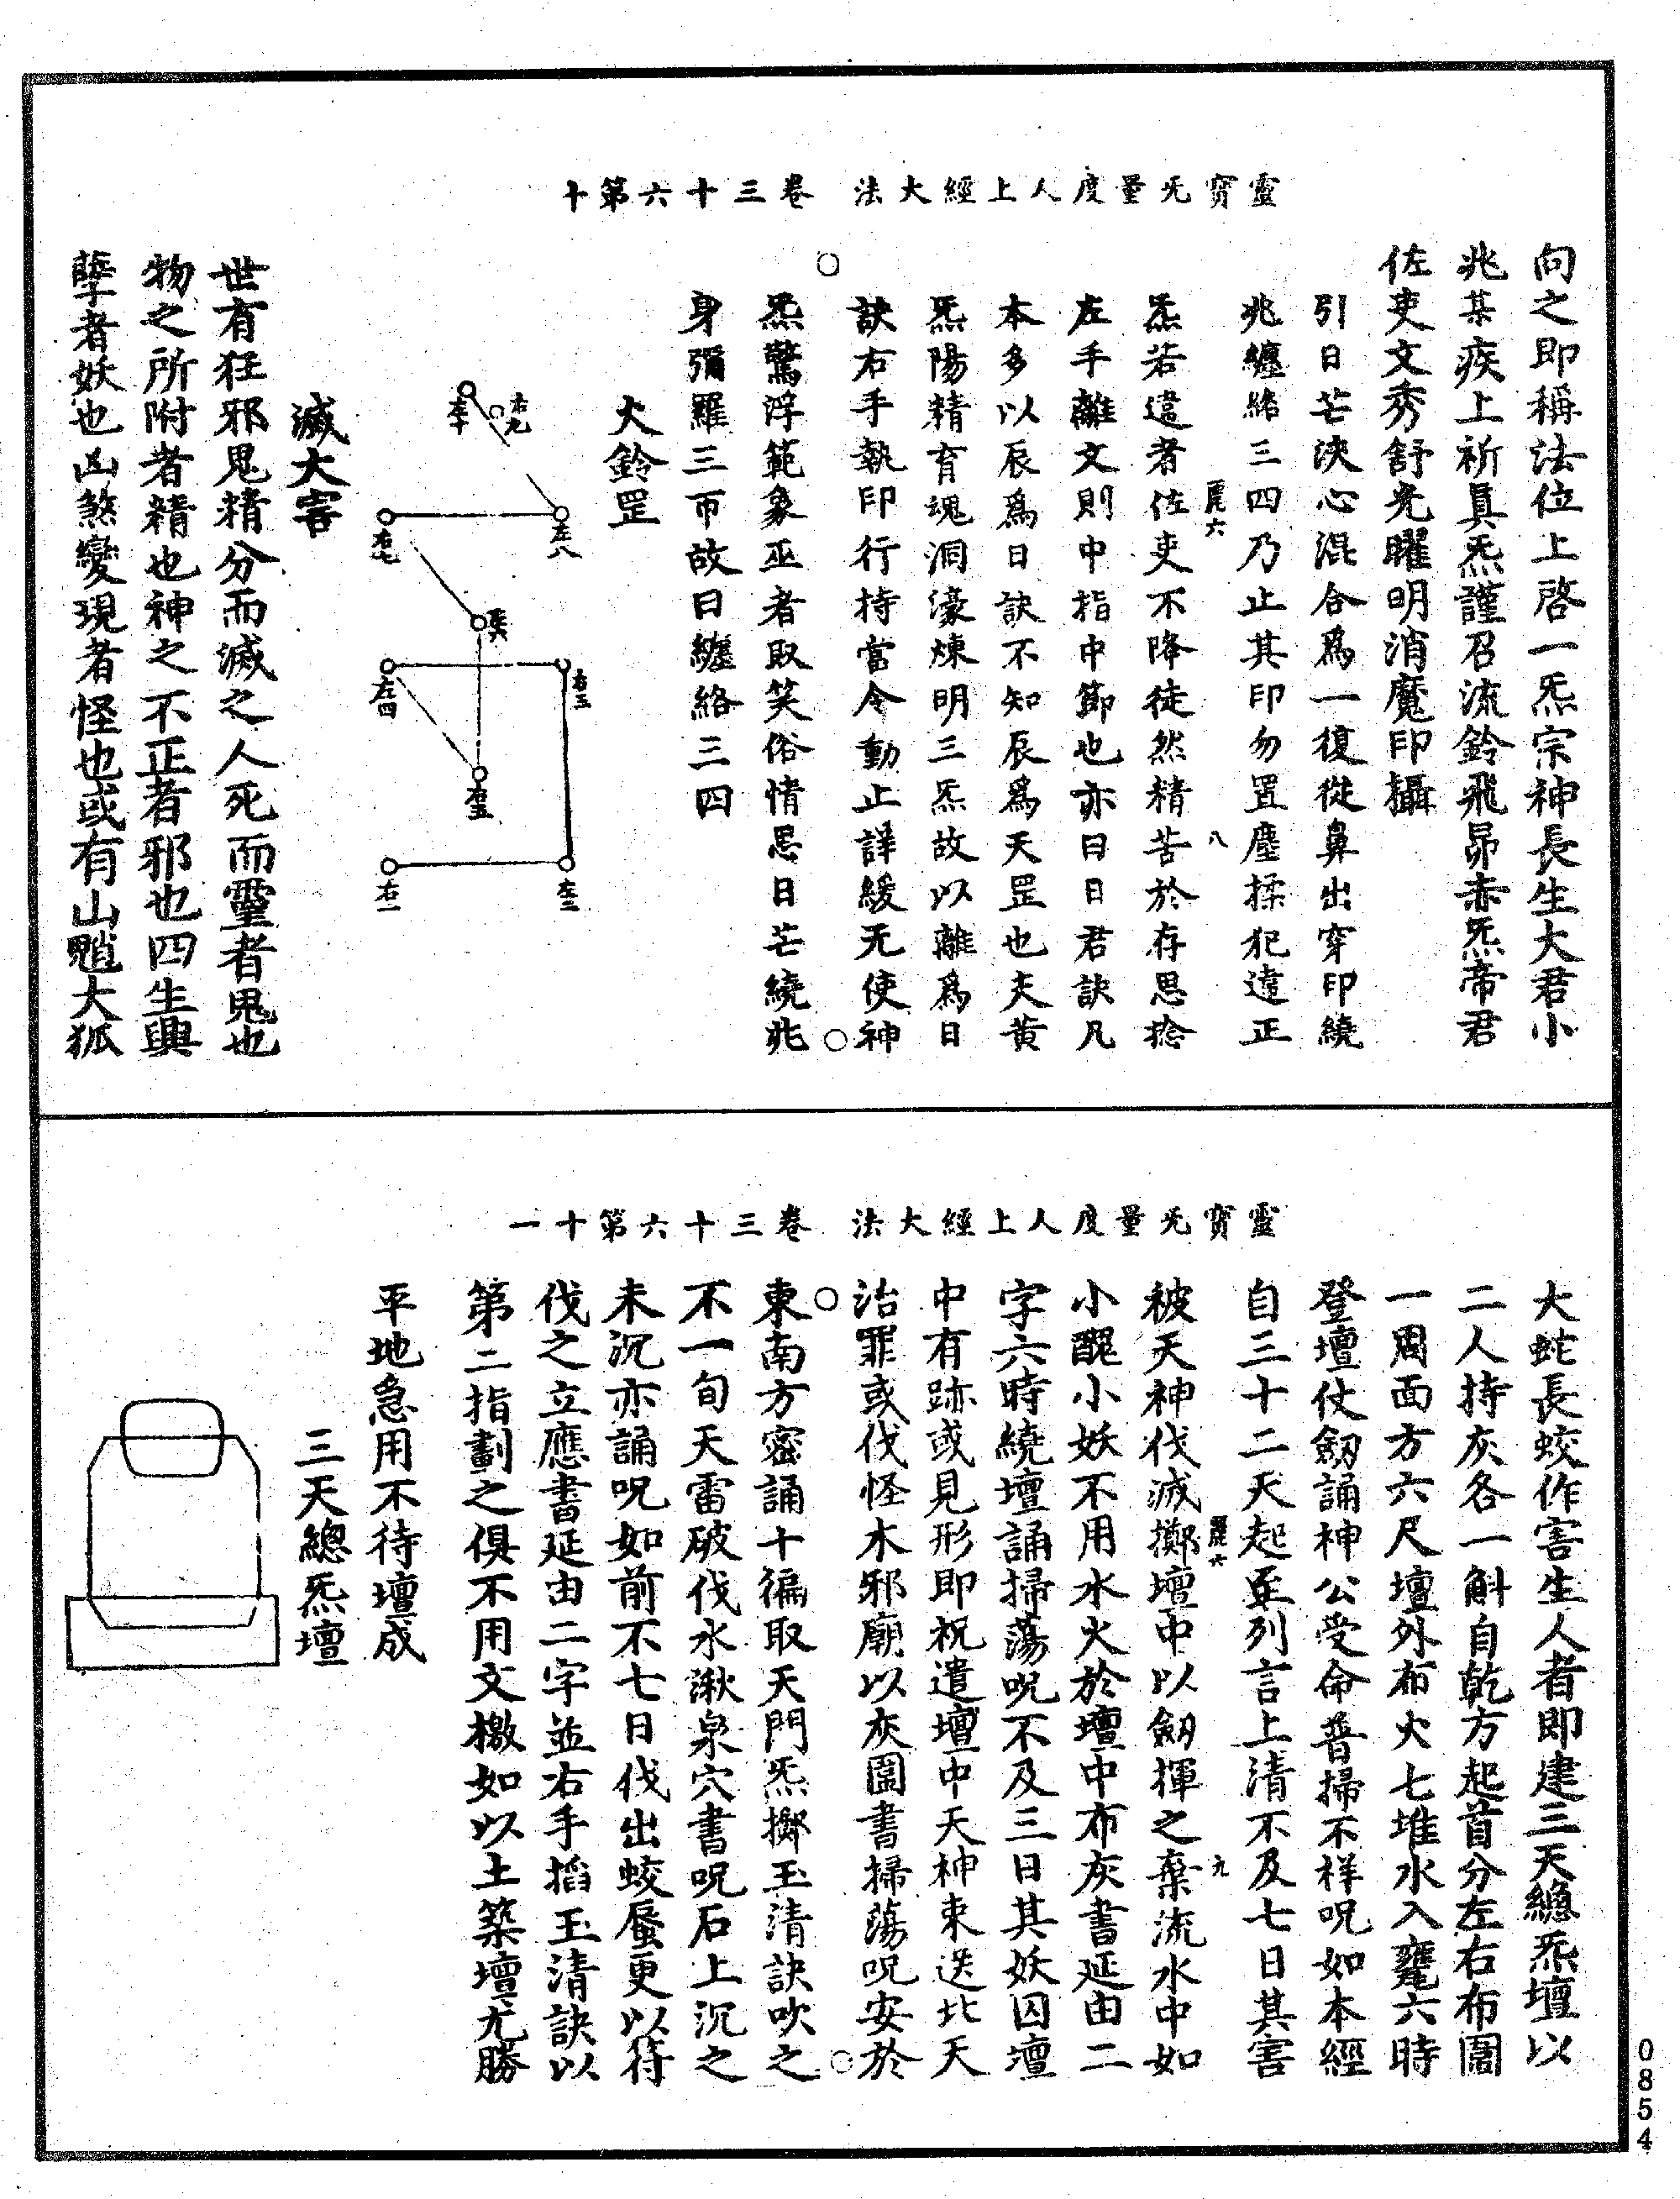 靈寶无量度人上經大法　卷三十六第十
向之即稱法位上啓一炁宗神長生大君小
兆某疾上祈真炁謹召流鈴飛昴赤炁帝君
佐吏文秀舒光曜明消魔印攝
引日芒浹心混合爲一復從鼻出穿印繞
兆纏絡三四乃止其印勿置塵揉犯違正
麗六　八
炁若違者佐吏不降徒然精苦於存思捻
左手離文則中指中節也亦曰日君訣凡
本多以辰爲日訣不知辰爲天罡也夫黄
炁陽精育魂洞濠煉明三炁故以離爲日
訣右手執印行持當令動止詳緩无使神
炁驚浮範象巫者取笑俗情思日芒繞兆
身彌羅三帀故曰纏絡三四
大鈴罡
左十
右九
左八
右七
左六
右五
左四
右三
左二
右一
滅大害
世有狂邪鬼精分而滅之人死而靈者鬼也
物之所附者精也神之不正者邪也四生興
孽者妖也凶煞變現者怪也或有山魈大狐
靈寶无量度人上經大法　卷三十六第十一
大蛇長蛟作害生人者即建三天總炁壇以
二人持灰各一斛自乾方起首分左右布圍
一周面方六尺壇外布火七堆水入甕六時
登壇仗劒誦神公受命普掃不祥呪如本經
自三十二天起至列言上清不及七日其害
麗六　九
被天神伐滅擲壇中以劒揮之棄流水中如
小醜小妖不用水火於壇中布灰書延由二
字六時繞壇誦掃蕩呪不及三日其妖囚壇
中有跡或見形即祝遣壇中天神束送北天
治罪或伐怪木邪廟以灰圍書掃蕩呪安於
東南方密誦十徧取天門炁擲玉清訣吹之
不一旬天雷破伐水湫泉穴書呪石上沉之
未沉亦誦呪如前不七日伐出蛟蜃更以符
伐之立應書延由二字並右手掐玉清訣以
第二指劃之俱不用文檄如以土築壇尤勝
平地急用不待壇成
三天總炁壇
0854